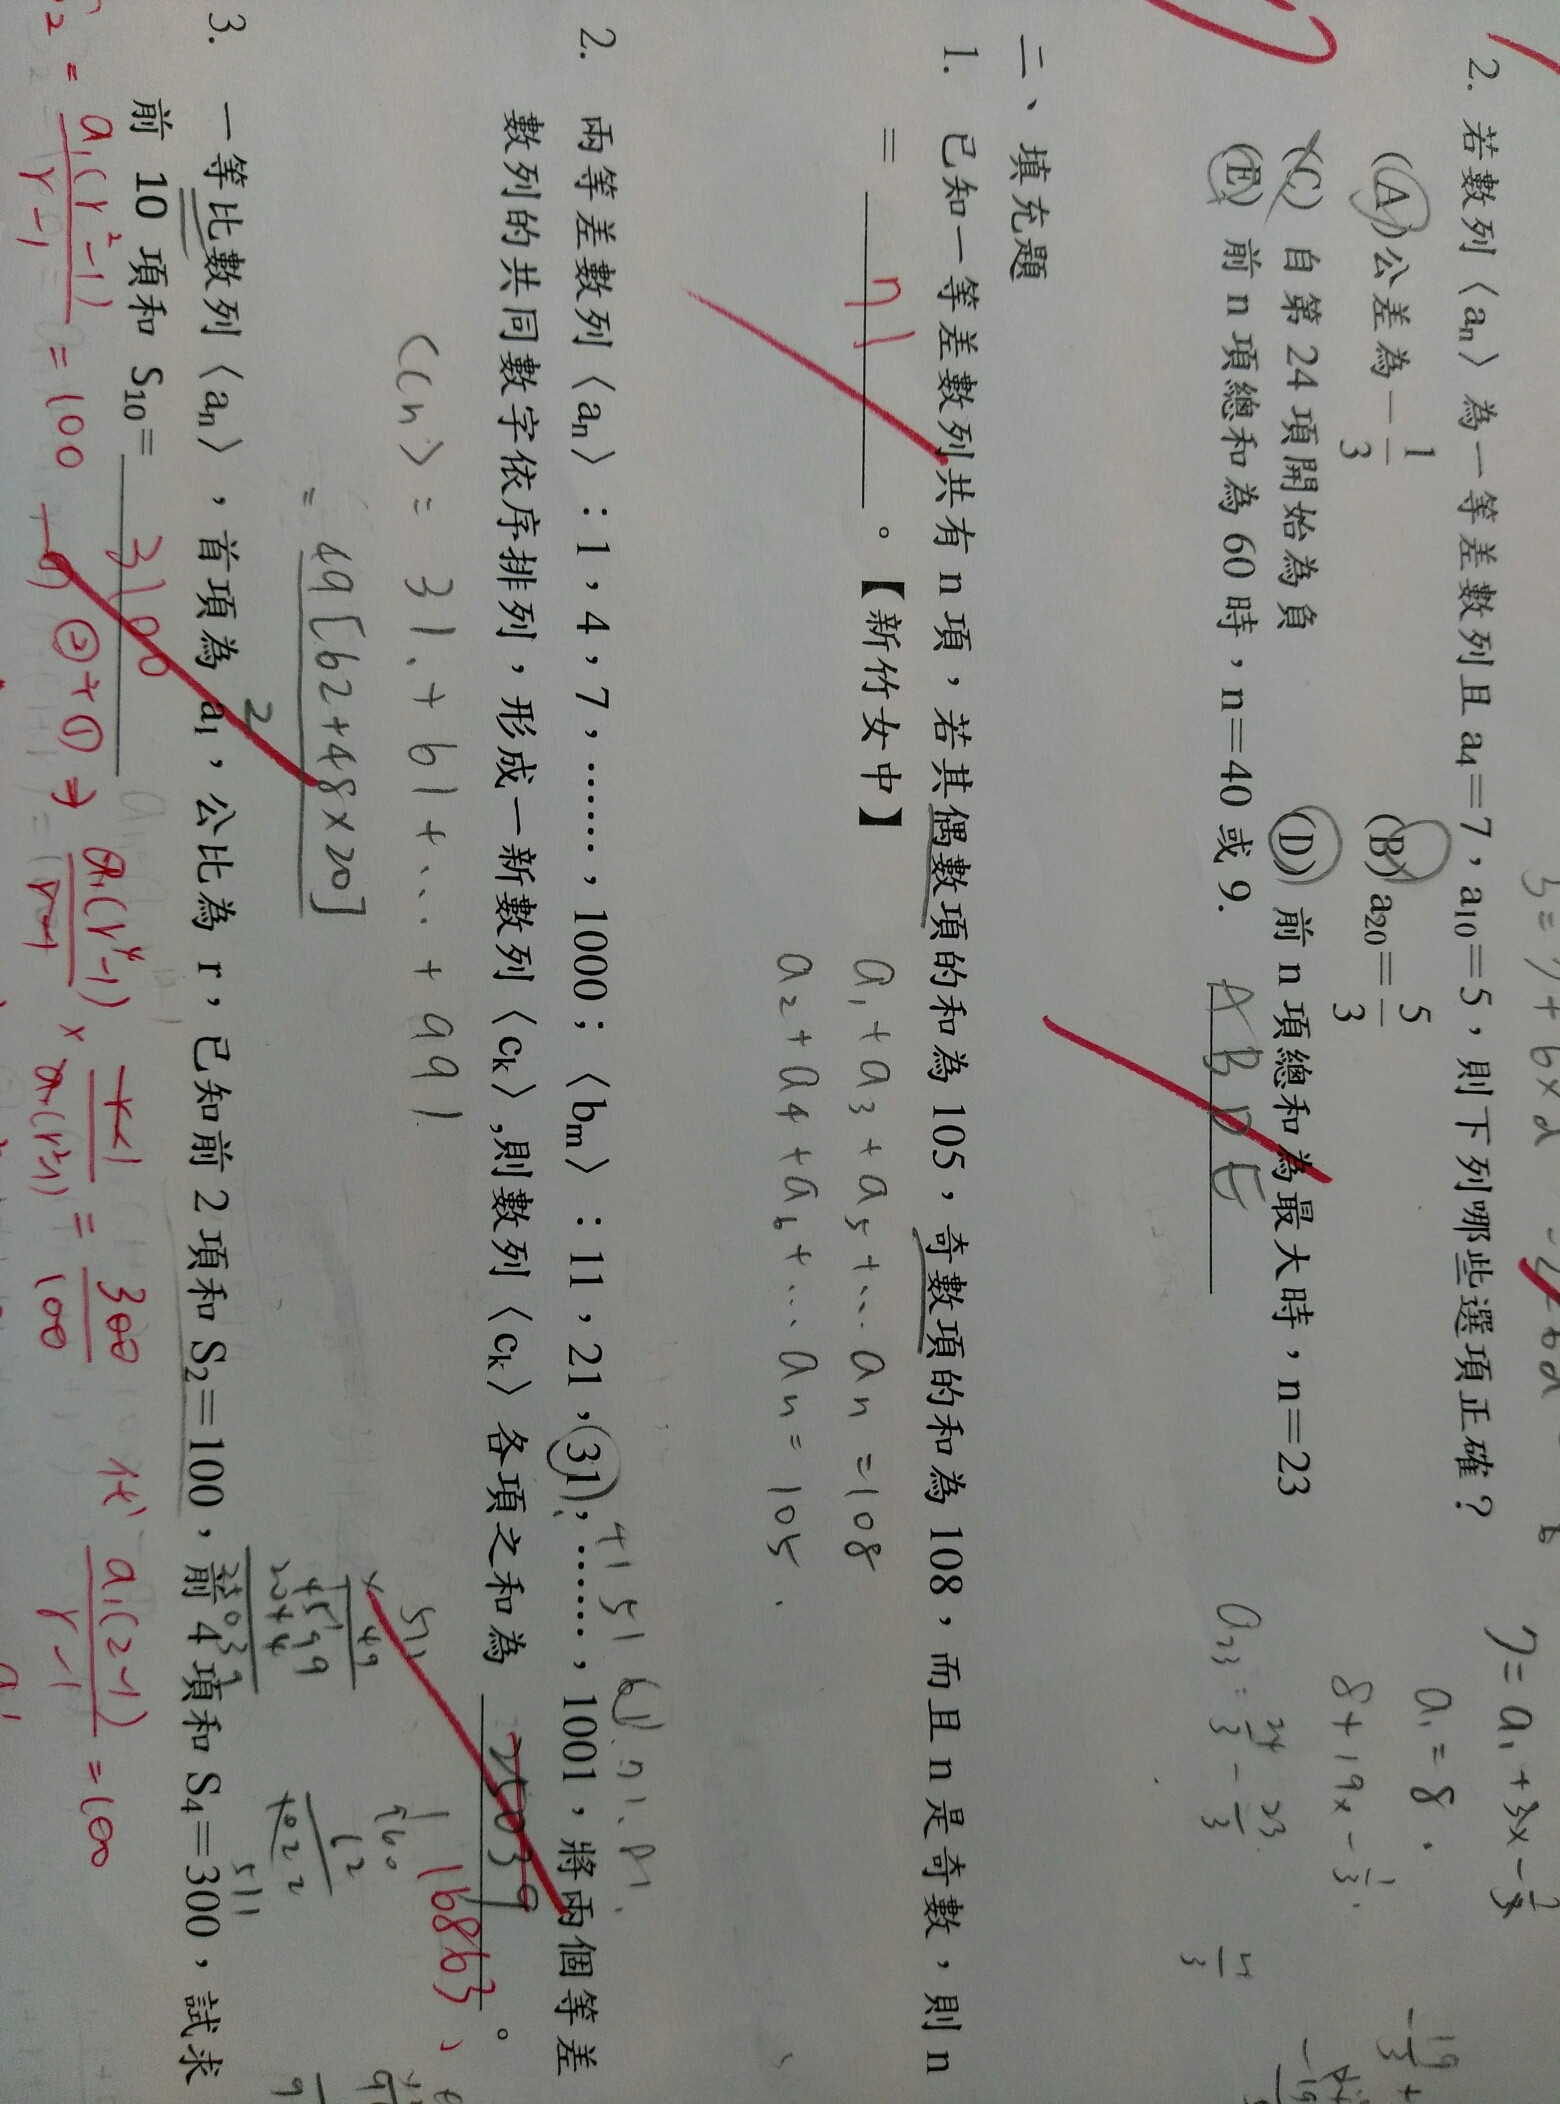 2. 若數列〈an〉為一等差數列且 a4=7，a10=5，則下列哪些選項正確？
(A)公差為−1/3 (B) a20=5/3
(C) 自第 24 項開始為負 (D) 前 n 項總和為最大時，n=23
(E) 前 n 項總和為 60 時，n=40 或 9.
A B D E
7=a1+3x-
a1=8.
8+19x-1/3
二、填充題
1. 已知一等差數列共有 n 項，若其偶數項的和為 105，奇數項的和為 108，而且 n 是奇數，則 n
= 71 。【新竹女中】
a1+a3+a5+...an=108
a2+a4+a6+...an=105.
41 51 61.71.81.
2. 兩等差數列〈an〉:1，4，7，……，1000；〈bm〉:11，21，31，……，1001，將兩個等差
數列的共同數字依序排列，形成一新數列〈ck〉,則數列〈ck〉各項之和為 25039 。
16863
〈cn〉= 31.+61+...+991
= 49[62+48×20]
2
3. 一等比數列〈an〉，首項為 a1，公比為 r，已知前 2 項和 S2=100，前 4 項和 S4=300，試求
前 10 項和 S10= 3100
S2 = a1(r²-1)/r-1 = 100 -① ②÷① ⇒ a1(r⁴-1)/r-1 × r-1/a1(r²-1) = 300/100 代 a1(2-1)/r-1 =100